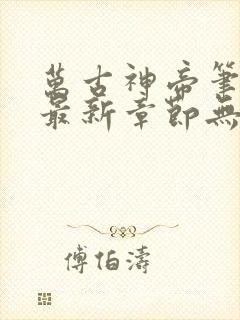 萬古神帝筆
最新章節無
傅伯濤